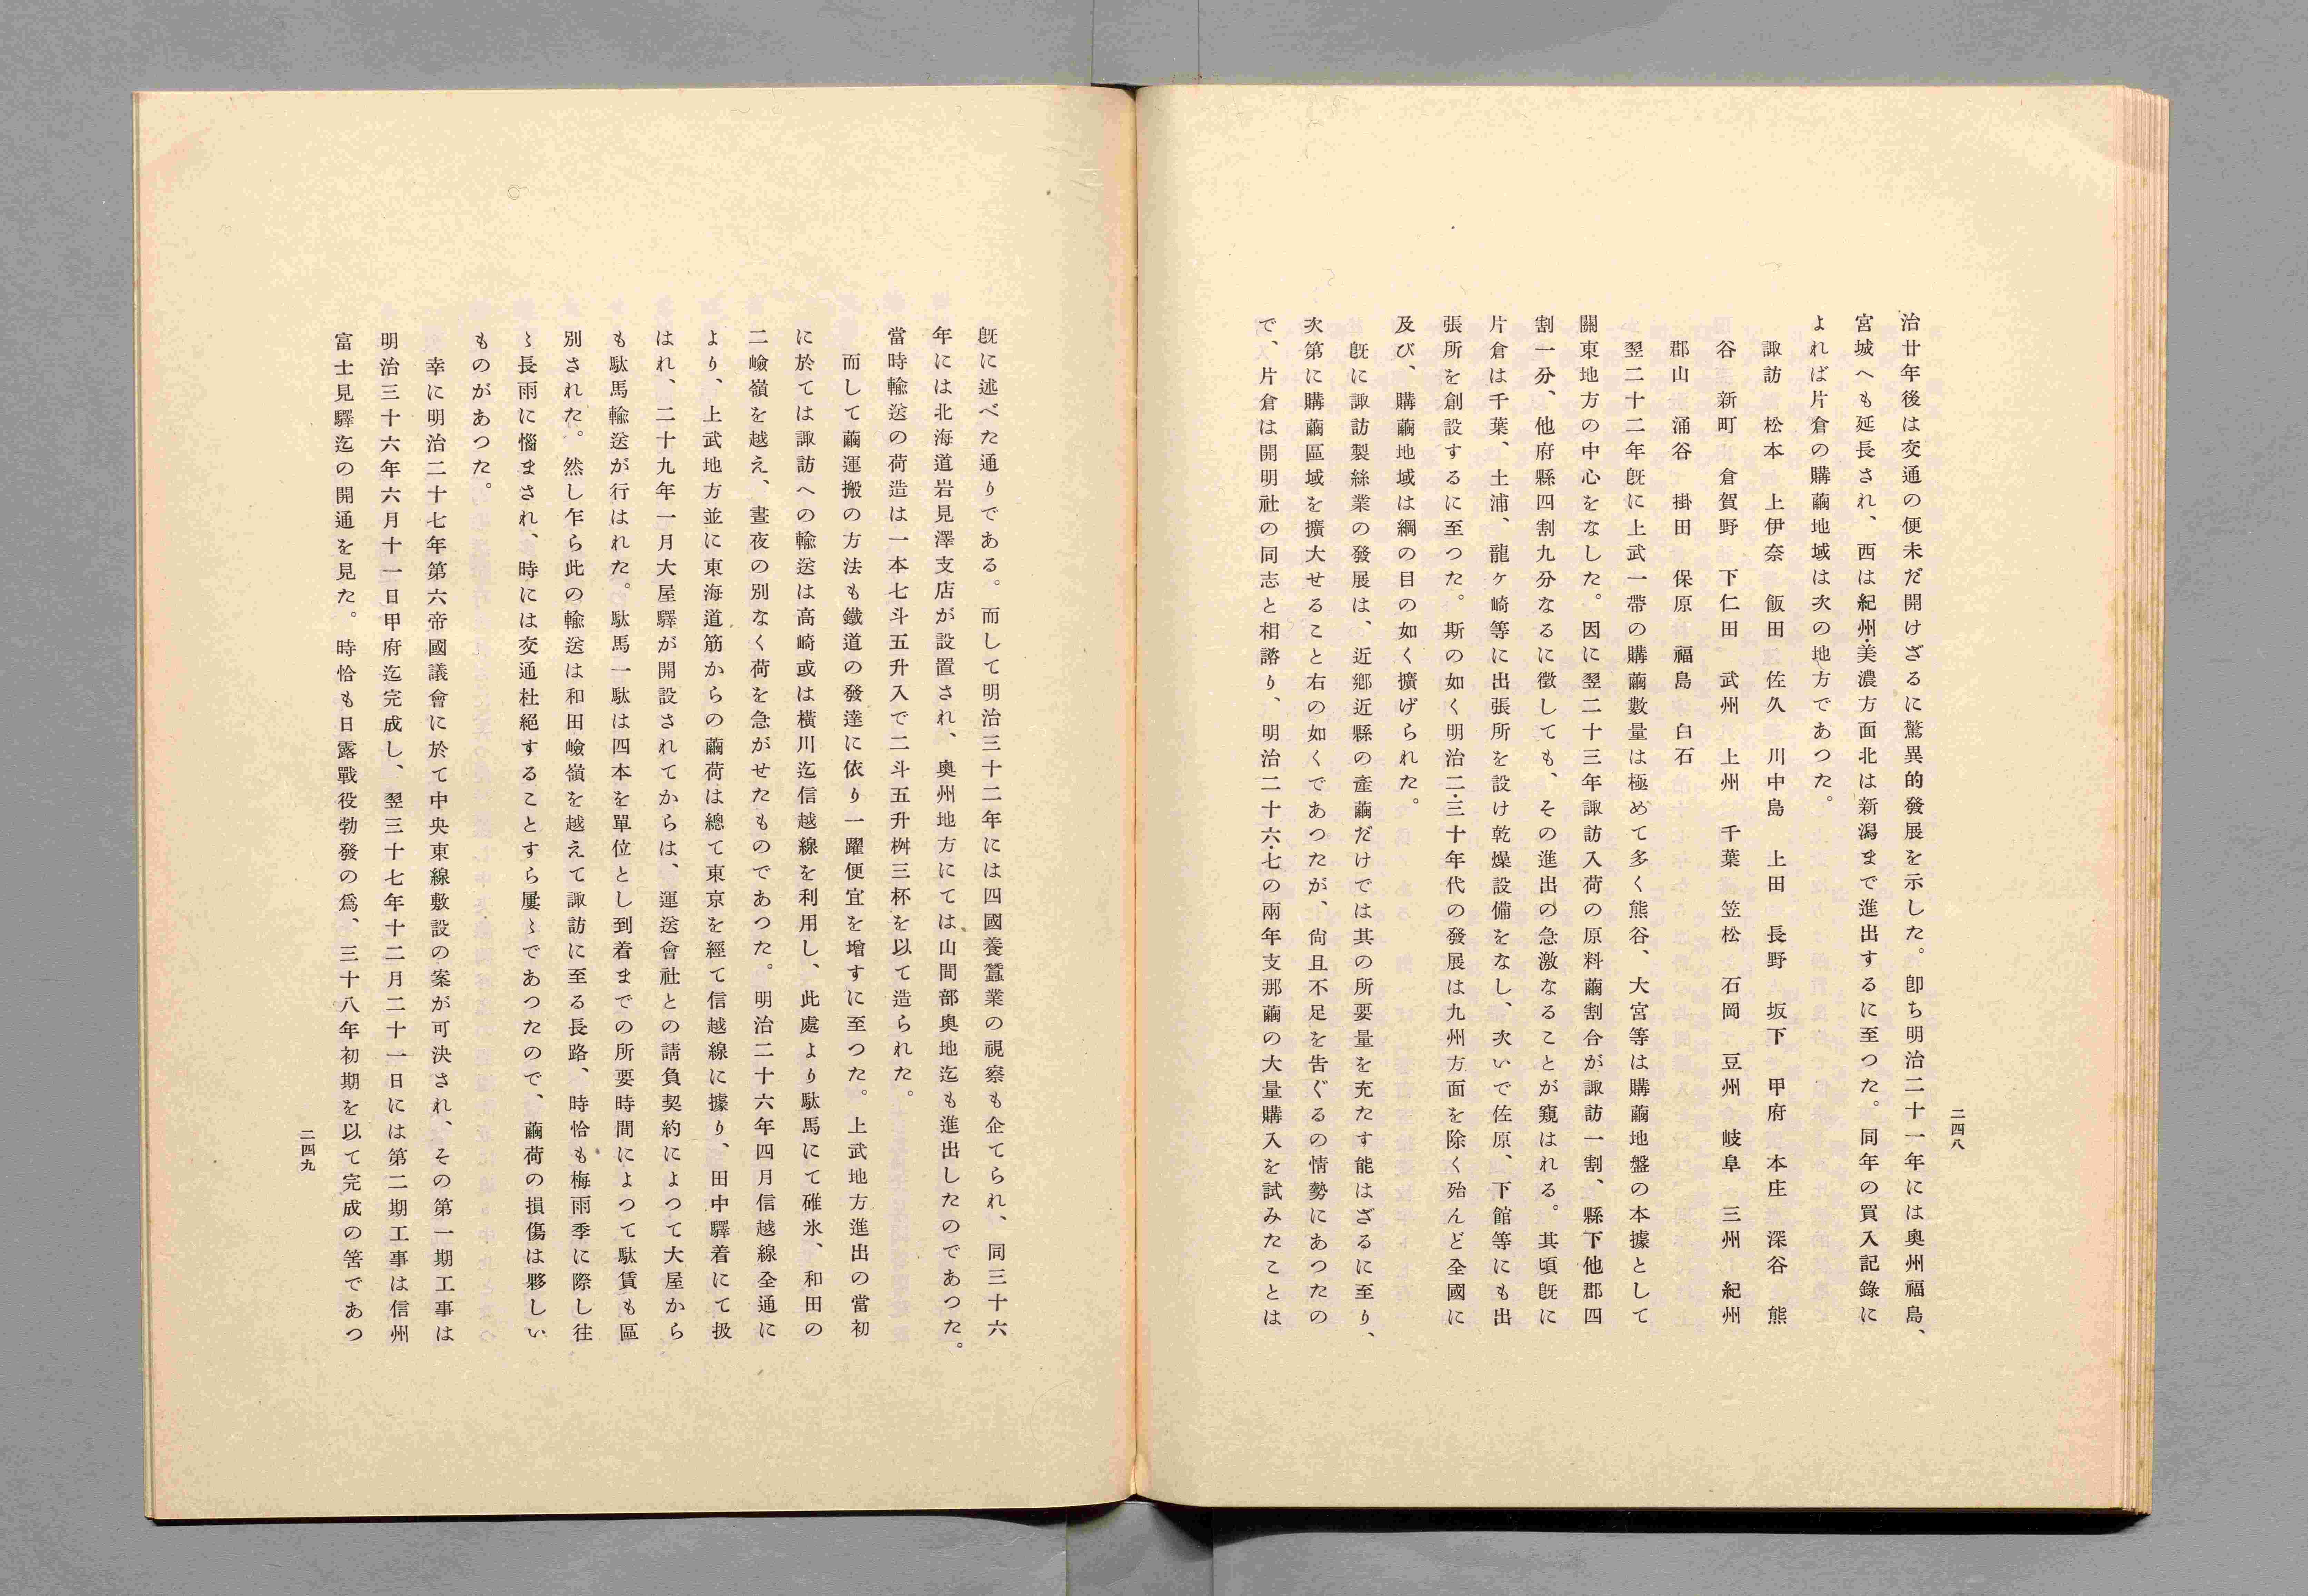 二四八
治廿年後は交通の便未だ開けざるに驚異的發展を示した。卽ち明治二十一年には奥州福島、
宮城へも延長され、西は紀州・美濃方面北は新潟まで進出するに至つた。同年の買入記錄に
よれば片倉の購繭地域は次の地方であつた。
諏訪　松本　上伊奈　飯田　佐久　川中島　上田　長野　坂下　甲府　本庄　深谷　熊
谷　新町　倉賀野　下仁田　武州　上州　千葉　笠松　石岡　豆州　岐阜　三州　紀州
郡山　涌谷　掛田　保原　福島　白石
翌二十二年旣に上武一帶の購繭數量は極めて多く熊谷、大宮等は購繭地盤の本據として
關東地方の中心をなした。因に翌二十三年諏訪入荷の原料繭割合が諏訪一割、縣下他郡四
割一分、他府縣四割九分なるに徵しても、その進出の急激なることが窺はれる。其頃旣に
片倉は千葉、土浦、龍ヶ崎等に出張所を設け乾燥設備をなし、次いで佐原、下館等にも出
張所を創設するに至つた。斯の如く明治二・三十年代の發展は九州方面を除く殆んど全國に
及び、購繭地域は綱の目の如く擴げられた。
旣に諏訪製絲業の發展は、近鄕近縣の產繭だけでは其の所要量を充たす能はざるに至り、
次第に購繭區域を擴大せること右の如くであつたが、尙且不足を吿ぐるの情勢にあつたの
で、片倉は開明社の同志と相諮り、明治二十六・七の兩年支那繭の大量購入を試みたことは
旣に述べた通りである。而して明治三十二年には四國養蠶業の視察も企てられ、同三十六
年には北海道岩見澤支店が設置され、奥州地方にては山間部奥地迄も進出したのであつた。
當時輸送の荷造は一本七斗五升入で二斗五升桝三杯を以て造られた。
而して繭運搬の方法も鐵道の發達に依り一躍便宜を增すに至つた。上武地方進出の當初
に於ては諏訪への輸送は高崎或は橫川迄信越線を利用し、此處より駄馬にて碓氷、和田の
二嶮嶺を越え、晝夜の別なく荷を急がせたものであつた。明治二十六年四月信越線全通に
より、上武地方並に東海道筋からの繭荷は總て東京を經て信越線に據り、田中驛着にて扱
はれ、二十九年一月大屋驛が開設されてからは、運送會社との請負契約によつて大屋から
も駄馬輸送が行はれた。駄馬一駄は四本を單位とし到着までの所要時間によつて駄賃も區
別された。然し乍ら此の輸送は和田嶮嶺を越えて諏訪に至る長路、時恰も梅雨季に際し往
〻長雨に惱まされ、時には交通杜絕することすら屢〻であつたので、繭荷の損傷は夥しい
ものがあつた。
幸に明治二十七年第六帝國議會に於て中央東線敷設の案が可決され、その第一期工事は
明治三十六年六月十一日甲府迄完成し、翌三十七年十二月二十一日には第二期工事は信州
富士見驛迄の開通を見た。時恰も日露戰役勃發の爲、三十八年初期を以て完成の筈であつ
二四九